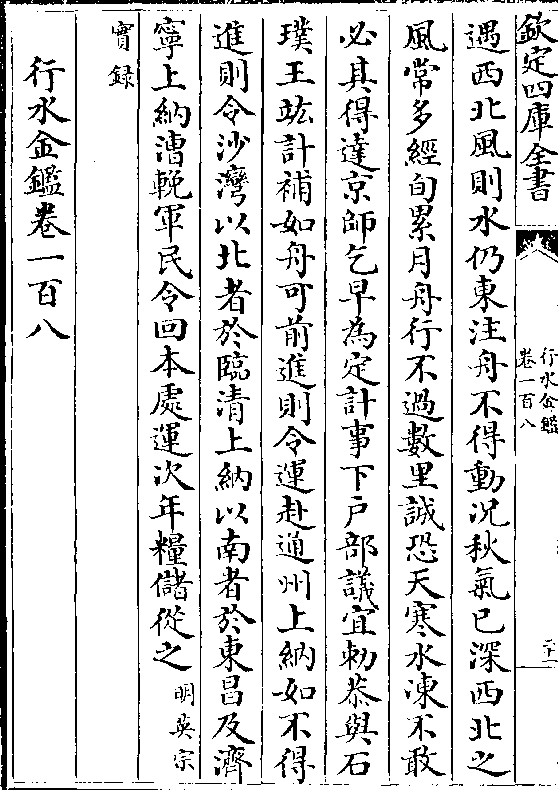 欽定四庫全書
行水金鑑
卷一百八
二十一
遇西北風則水仍東注舟不得動況秋氣已深西北之
風常多經旬累月舟行不過數里誠恐天寒水凍不敢
必其得達京師乞早為定計事下戶部議宜勅恭與石
璞王竑計補如舟可前進則令運赴通州上納如不得
進則令沙灣以北者於臨清上納以南者於東昌及濟
寧上納漕輓軍民令回本處運次年糧儲從之明英宗
實録
行水金鑑卷一百八